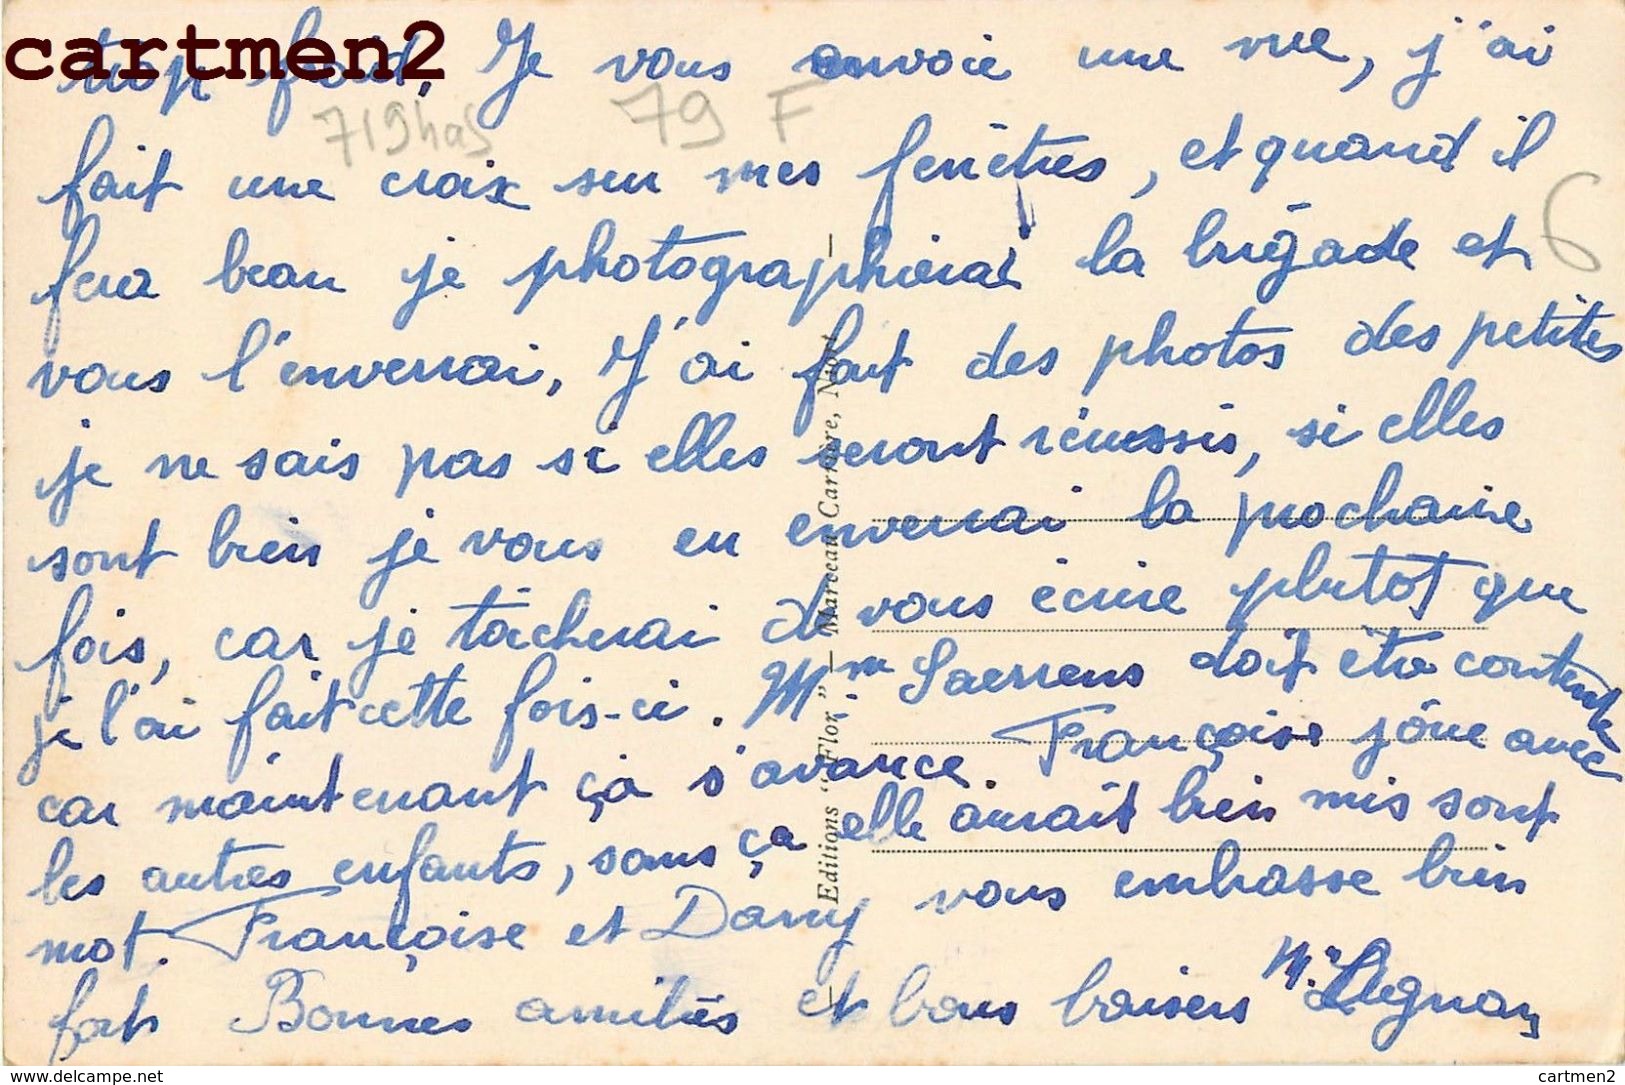 cartmen2
trop froid, Je vous envoie une vue, j'ai
719has 79 F
fait une croix sur mes fenêtres, et quand il
6
fera beau je photographierai la brigade et
vous l'enverrai, J'ai fait des photos des petites
je ne sais pas si elles seront réussis, si elles
sont bien je vous en enverrai la prochaine
fois, car je tâcherai de vous écrire plutot que
je l'ai fait cette fois-ci. Mm Saerrens doit être contente
car maintenant ça s'avance. Françoise jôue avec
les autres enfants, sans ça elle aurait bien mis sont
mot. Françoise et Dany vous embrasse bien
fort Bonnes amitiés et bons baisers
Editions "Flor" — Marceau Carrière, Niort
www.delcampe.net
cartmen2